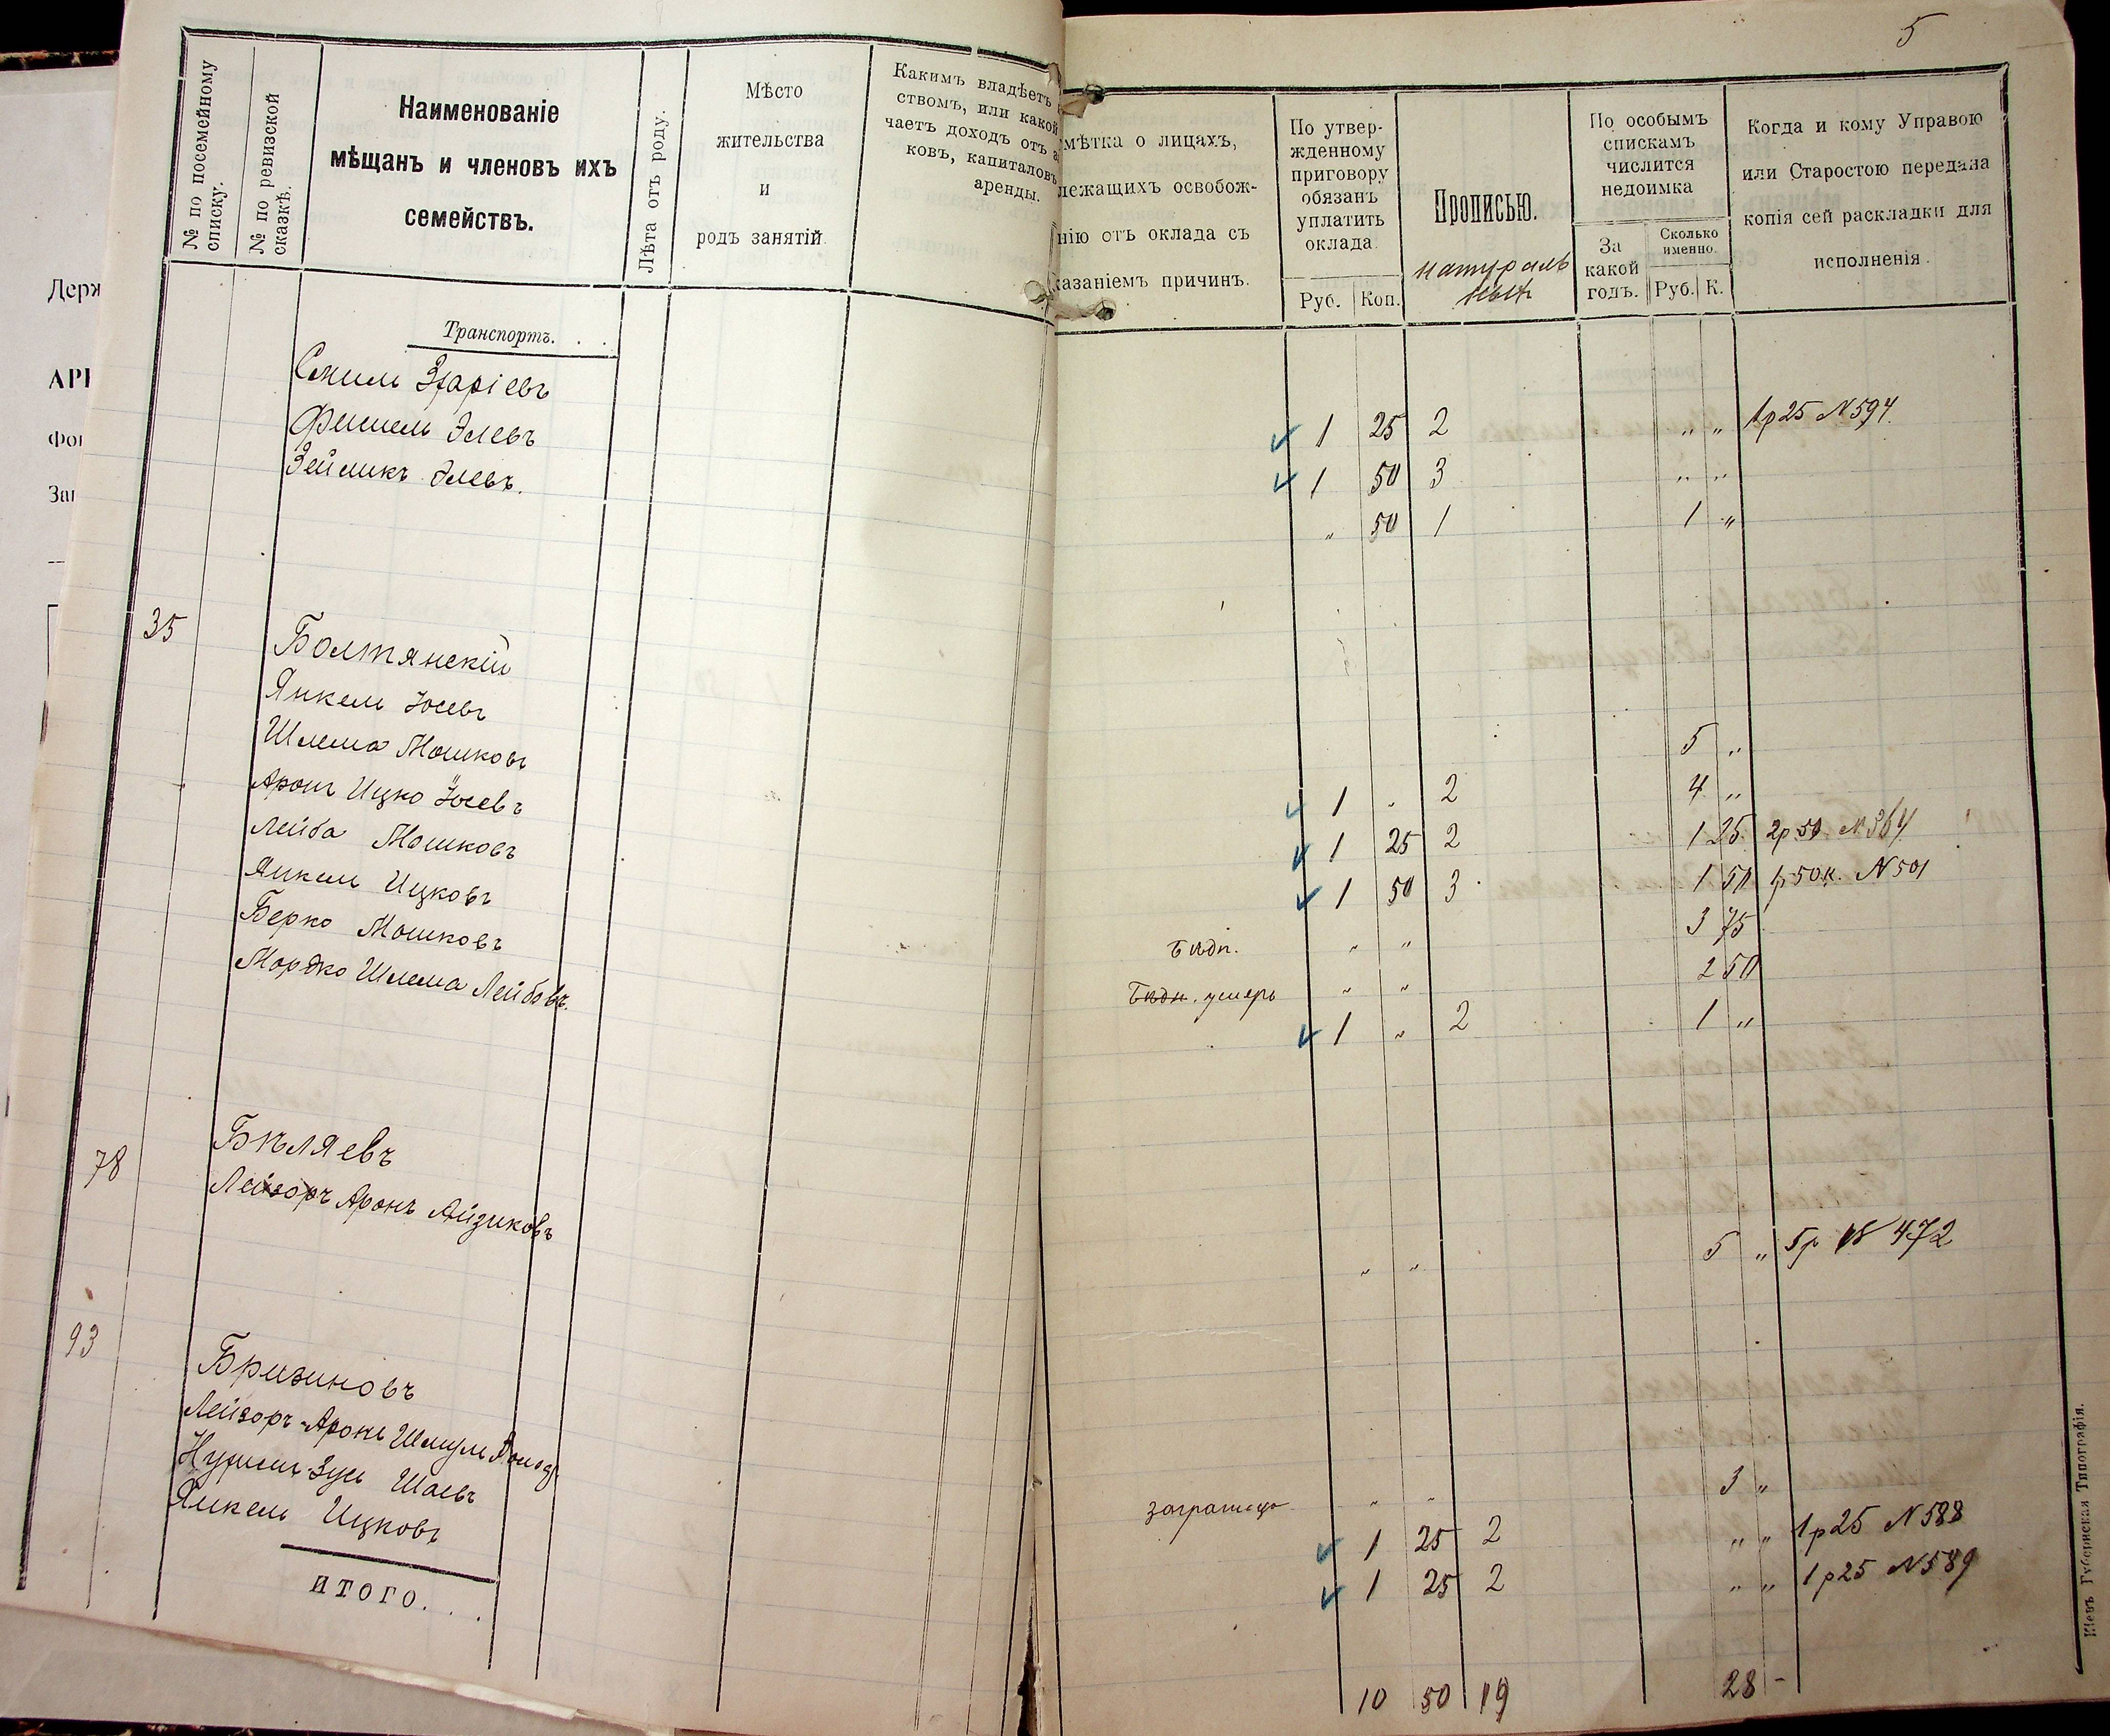 5
№ по посемейному списку.
№ по ревизской сказкѣ.
Наименованіе
мѣщанъ и членовъ ихъ
семействъ.
Лѣта отъ роду.
Мѣсто
жительства
и
родъ занятій.
Какимъ владѣетъ
ствомъ, или какой
чаетъ доходъ отъ
ковъ, капиталовъ
аренды.
мѣтка о лицахъ,
лежащихъ освобож-
нію отъ оклада съ
казаніемъ причинъ.
По утвер-
жденному
приговору
обязанъ
уплатить
оклада.
Руб. Коп.
Прописью.
натураль
ныя
По особымъ
спискамъ
числится
недоимка
За
какой
годъ.
Сколько
именно.
Руб. К.
Когда и кому Управою
или Старостою передана
копія сей раскладки для
исполненія.
Держ
АРІ
фог
Заг
Транспортъ. . .
Смилъ 1 25 2 „ „ 1р 25 N 594.
Фишель Элевъ 1 50 3 „ „
Зейликъ Элевъ. „ 50 1 1 „
35 Болтянскій
Янкель Іосевъ 5 „
Шлема Мошковъ 1 „ 2 4 „
Аронъ Ицко Іосевъ 1 25 2 1 25 2р 50 N 364
Лейба Мошковъ 1 50 3 1 50 1р 50к. N 501
Янкель Ицковъ бѣдн. „ „ 3 75
Берко Мошковъ бѣдн. умеръ „ „ 2 50
Мордко Шлема Лейбовъ. 1 „ 2 1 „
78 Бѣляевъ
Лейзоръ Аронъ Айзиковъ „ „ 5 „ 5р N 472
93 Бризиновъ
Лейзоръ-Аронъ Шмуль заграницо „ „ 3 „
Нухим-Зусь Шаевъ 1 25 2 „ „ 1р 25 N 588
Янкель Ицковъ 1 25 2 „ „ 1р 25 N 589
ИТОГО. . .
10 50 19 28 -
Кіевъ Губернская Типографія.